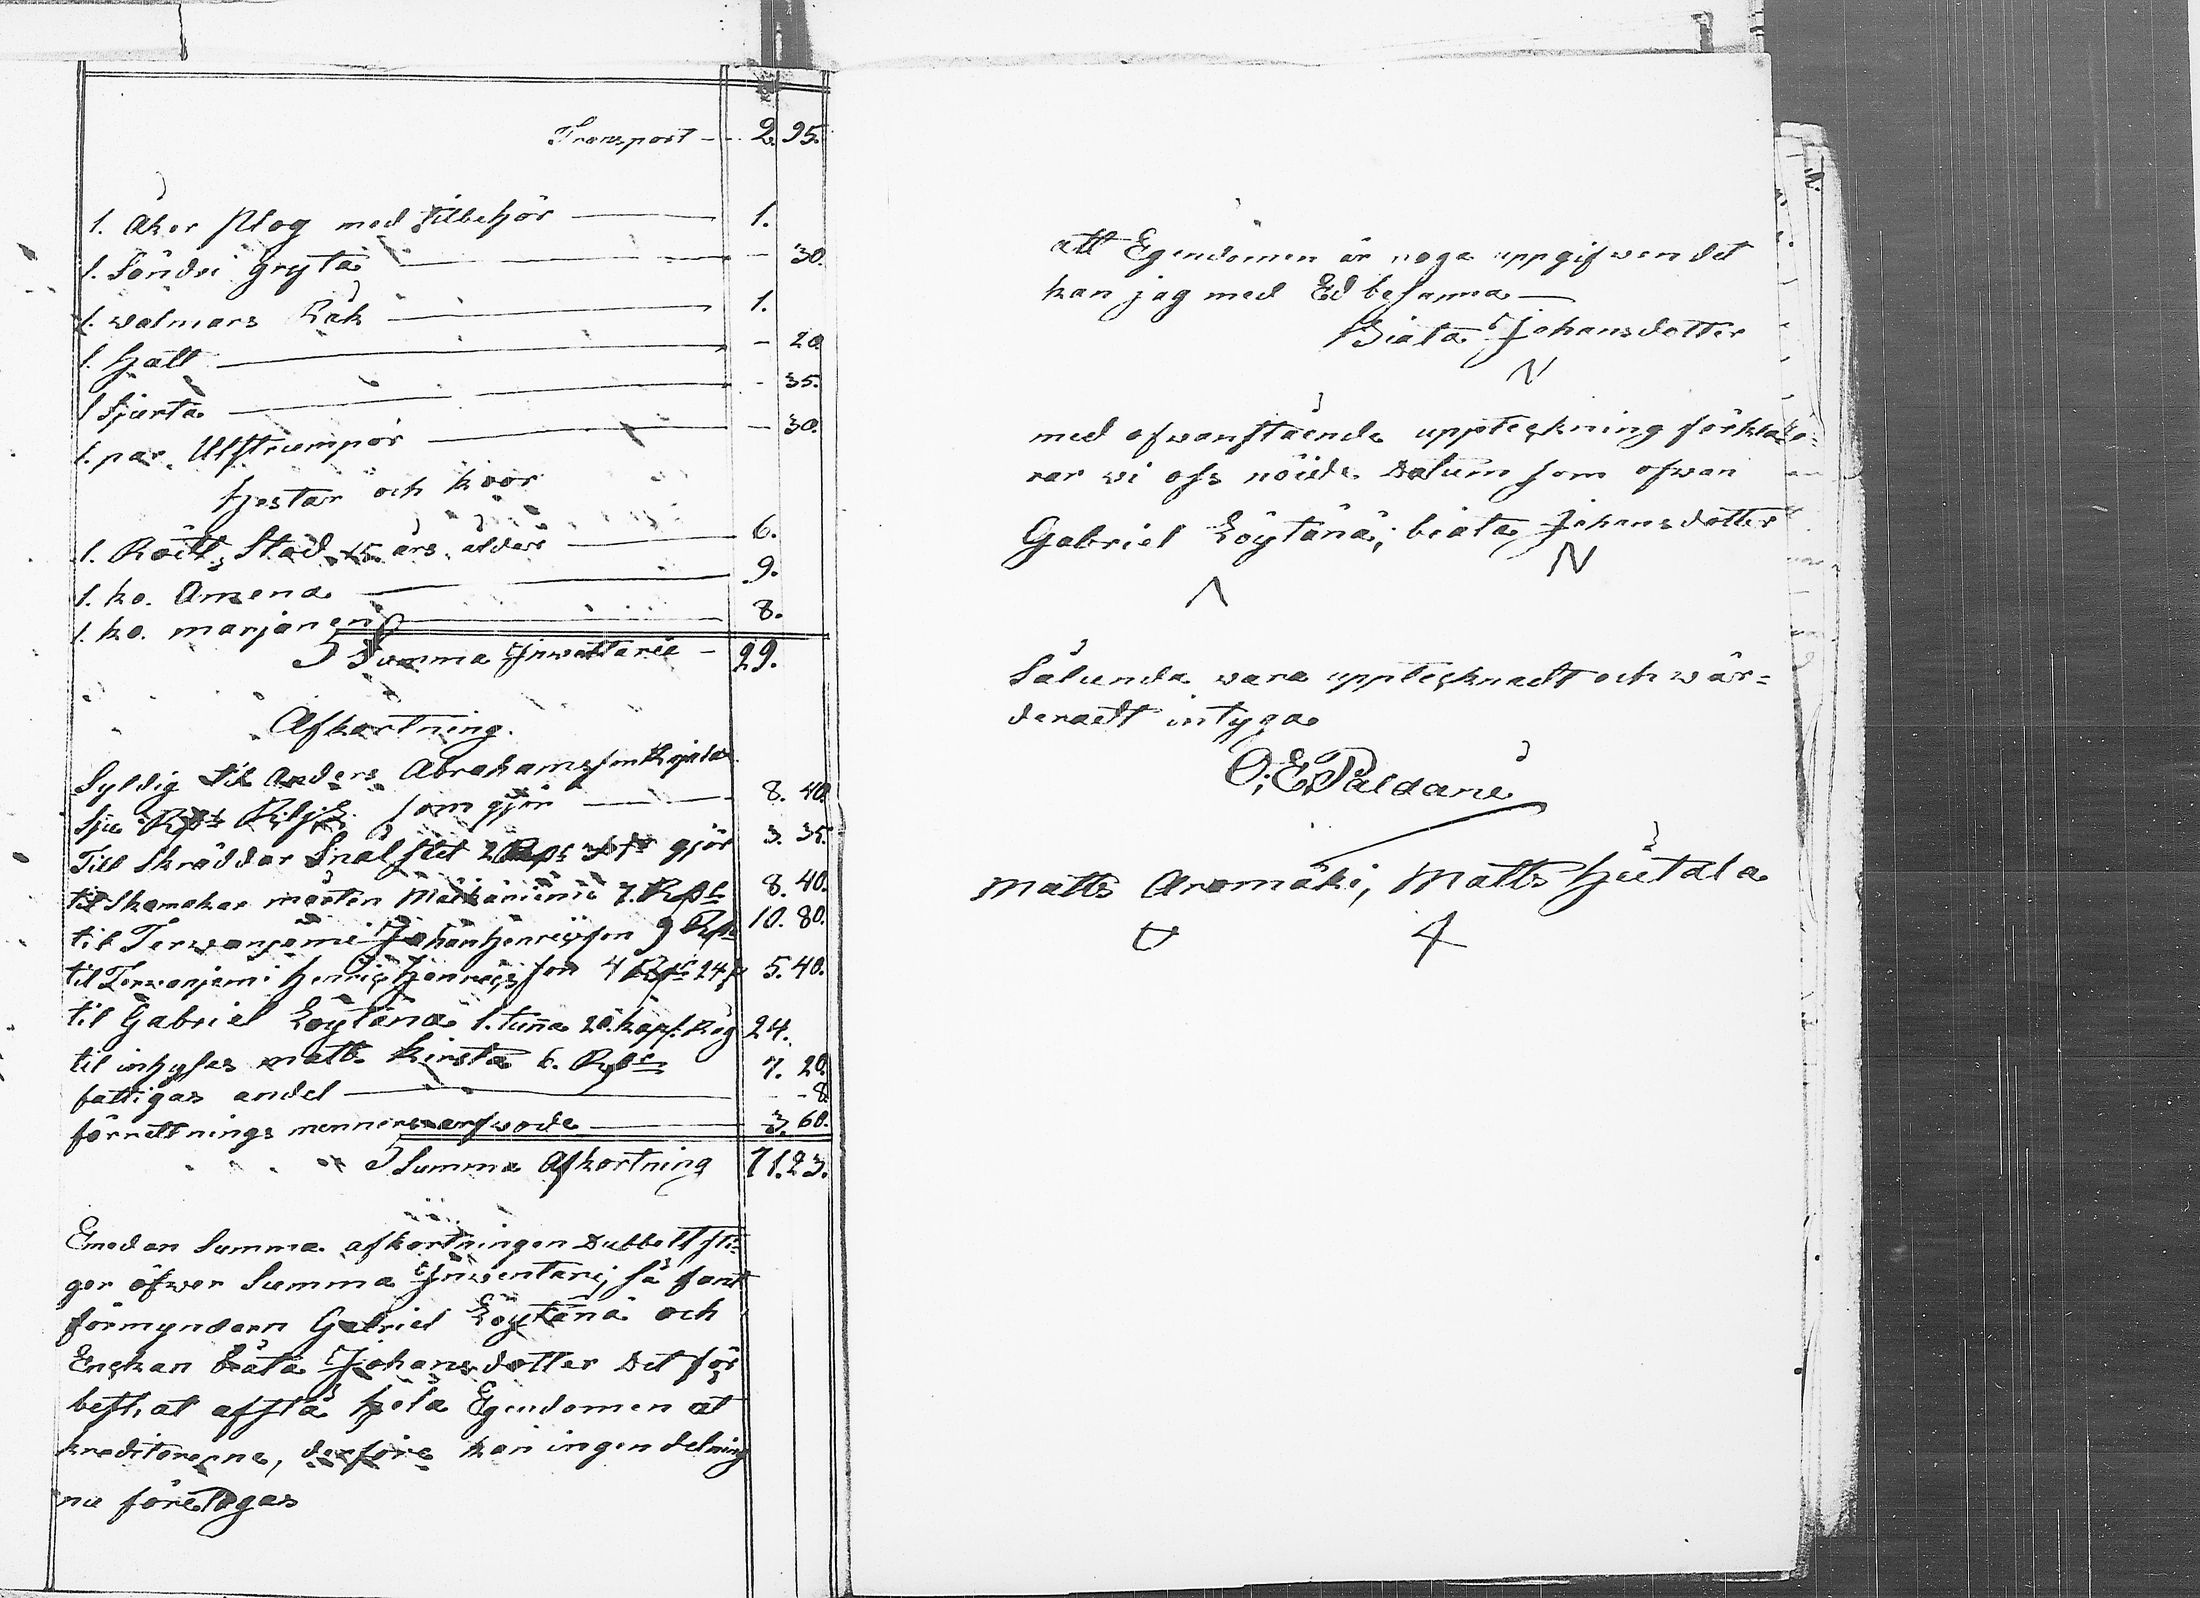 Transport - 2. 95.
1. åker Plog med tilbehör 1.
1. Söndri gryta - 30.
1. walmars Råk 1.
1. hatt - 20.
1 skjurta - 35.
1. par Ulstrumpor - 30.
hestar och koor
1. Rödt Stod 15 års ålder 6.
1. ko. Omena 9.
1. ko. marjonen 8.
Summa Inwattarie - 29.
Afkortning.
Syldig til Anders Abrahamsson
sju Rbs som gjör 8. 40.
Till Skräddar Snäl 2 gjör 3. 35.
til Skomakar mårten 7. Rbs 8. 40.
til Terwanjemi Johan Henricsson 9 Rbs 10. 80.
til Terwanjemi Henric Henricsson 4 Rbs 24 5. 40.
til Gabriel Löytänä 1. tuna 20. kap. Råg 24.
til inhyses matts Kirsta 6. Rbs 7. 20.
fattigas andel - 8.
förrettnings menners arfwode 3. 60.
Summa Afkortning 71. 23.
Emedan Summa afkortningen Dubbelt sti-
ger öfwer Summa Inwentarij, så fant
förmyndarn Gabriel Löytänä och
Enckan beata Johansdotter Det för
best, at afstå hela Egendomen at
kreditorerne, derföre kan ingen delning
nu företagas
att Egendomen är noga uppgifwen det
kan jag med Ed besanna —
Biata Johansdotter
N
med ofwanstående uppteckning förkla-
rar wi oss nöide Datum som ofwan
Gabriel Löytänä; beata Johansdotter
Λ N
Sålunda wara upptecknadt och wär=
deradt intyga
O; E Paldane
Matts Aromäki, Matts Hietala